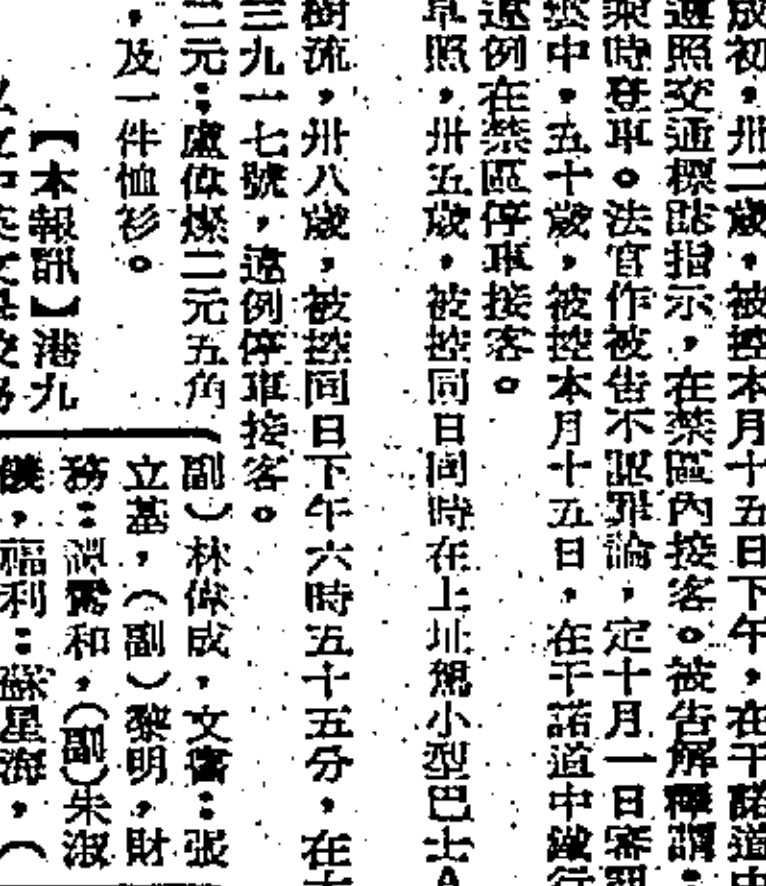 成初，卅二歲，被控本月十五日下午，在干諾道中
遵照交通標誌指示，在禁區內接客。被告解釋謂：
來時登車。法官作被告不認罪論，定十月一日審訊
中，五十歲，被控本月十五日，在干諾道中
違例在禁區停車接客。
照，卅五歲，被控同日同時在上址駕小型巴士A
樹流，卅八歲，被控同日下午六時五十五分，在
三九一七號，違例停車接客。
二元；盧偉燦二元五角
，及一件恤衫。
【本報訊】港九
副）林偉成，文書：張
立基，（副）黎明，財
務：和，（副）朱淑
，福利：蘇星海，（